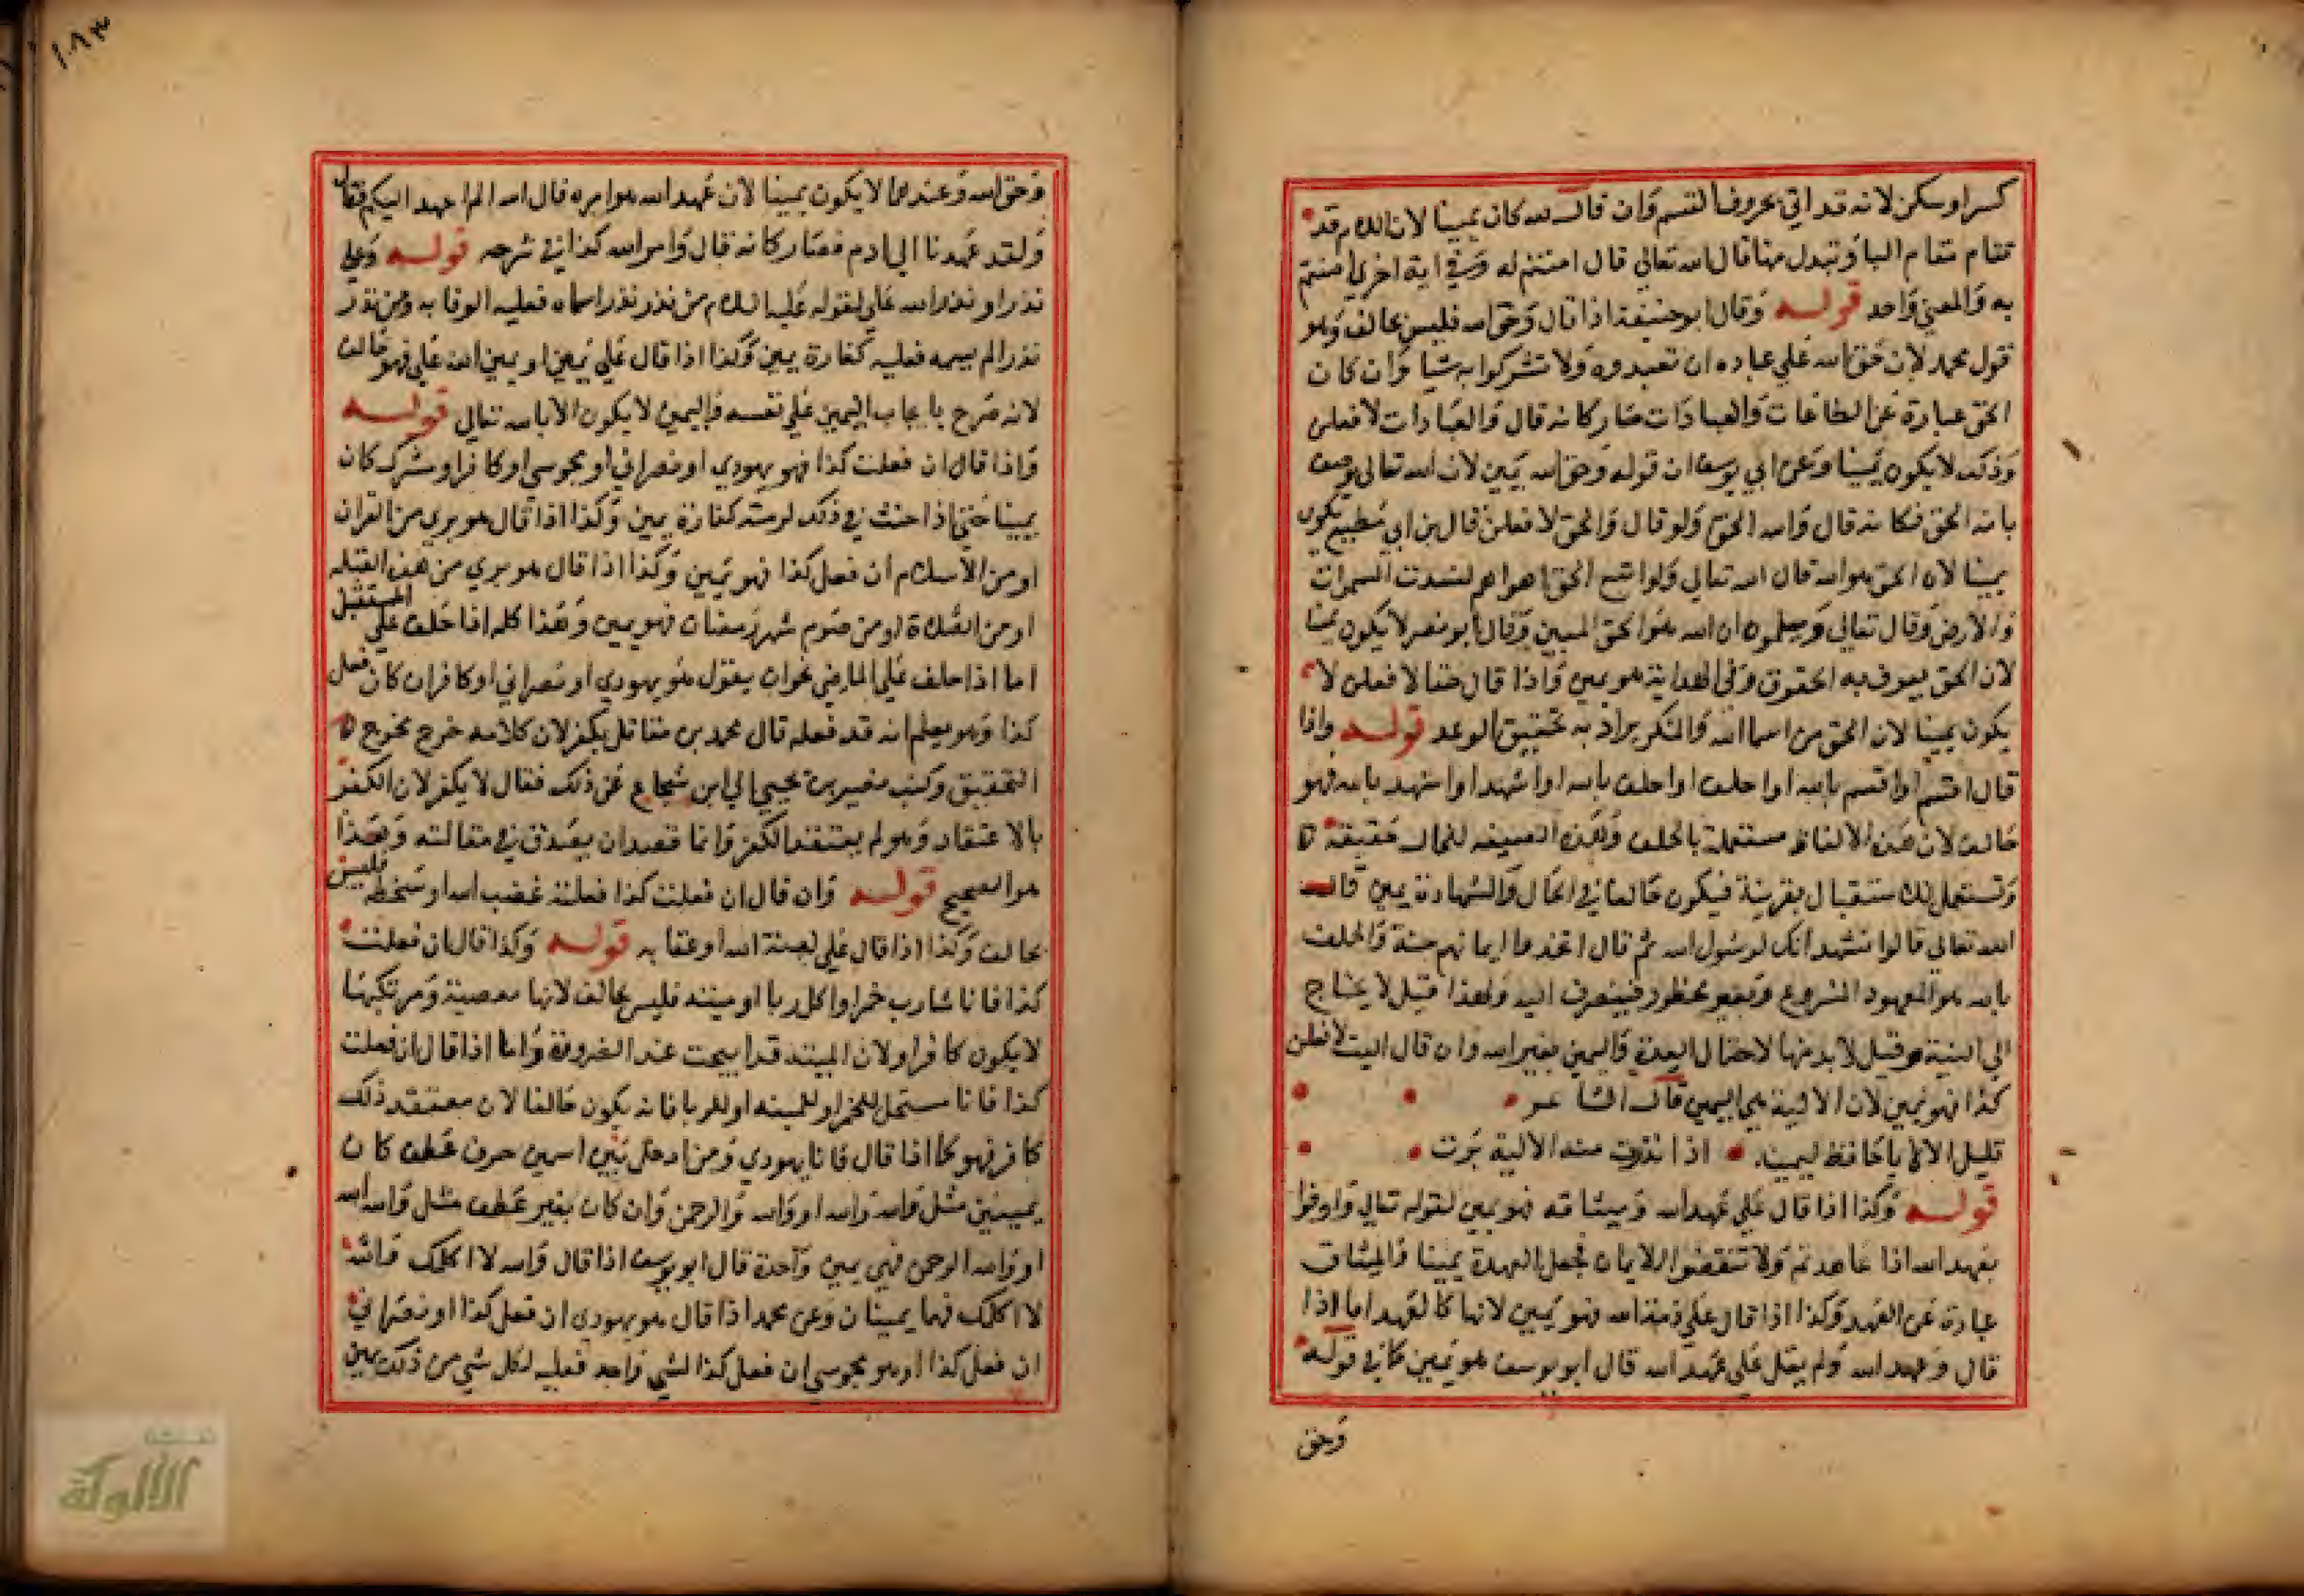 كسر او سكن لانه قد اتي بحروف القسم وان قال لله كان يمينا لان اللام قد
تقام مقام البا وتبدل منها قال الله تعالي قال امنتم له وفي اية اخري امنتم
به والمعني واحد قوله وقال ابو حنيفة اذا قال وحق الله فليس بحالف وهو
قول محمد لان حق الله علي عباده ان تعبدوه ولا تشركوا به شيا وان كان
الحق عبارة عن الطاعات والعبادات صار كانه قال والعبادات لا فعلن
وذلك لا يكون يمينا وعن ابي يوسف ان قوله وحق الله يمين لان الله تعالي يوصف
بانه الحق فكانه قال والله الحق ولو قال والحق لا فعلن قال بن ابي مطيع يكون
يمينا لان الحق هو الله قال الله تعالي ولو اتبع الحق اهواهم لفسدت السموات
والارض وقال تعالي ويعلمون ان الله هو الحق المبين وقال ابو نصر لا يكون يمينا
لان الحق يعرف به الحقوق وفي الهداية هو يمين واذا قال حقا لا فعلن لا
يكون يمينا لان الحق من اسما الله والمنكر يراد به تحقيق الوعد قوله واذا
قال اقسم او اقسم بالله او احلف او احلف بالله او اشهد او اشهد بالله فهو
حالف لان هذه الالفاظ مستعملة بالحلف وهذه الصيغه للحال حقيقة
وتستعمل للاستقبال بقرينة فيكون حالفا في الحال والشهادة يمين قال
الله تعالي قالوا نشهد انك لرسول الله ثم قال اتخذوا ايمانهم جنة والحلف
بالله هو المعهود المشروع وبغيره محظور فينصرف اليه ولهذا قيل لا يحتاج
الي النية وقيل لا بد منها لاحتمال العدة واليمين بغير الله وان قال اليت لافعلن
كذا فهو يمين لان الالية هي اليمين قال الشاعر
قليل الالايا حافظ ليمينه اذا نذرت منه الالية برت
قوله وكذا اذا قال علي عهد الله وميثاقه فهو يمين لقوله تعالي واوفوا
بعهد الله اذا عاهدتم ولا تنقضوا الايمان فجعل العهدة يمينا والميثاق
عبارة عن العهد وكذا اذا قال علي ذمة الله فهو يمين لانها كالعهد اما اذا
قال وعهد الله ولم يقل علي عهد الله قال ابو يوسف هو يمين كما في قوله
وحق
١٨٣
وحق الله وعندهما لا يكون يمينا لان عهد الله هو امره قال الله الم اعهد اليكم فقال
ولقد عهدنا الي ادم فصار كانه قال وامر الله كذا في شرحه قوله وعلي
نذر او نذر الله علي لقوله عليه السلام من نذر نذرا سماه فعليه الوفا به ومن نذر
نذرا لم يسمه فعليه كفارة يمين وكذا اذا قال علي يمين او يمين الله علي فهو حالف
لانه صرح بايجاب اليمين علي نفسه واليمين لا يكون الا بالله تعالي قوله
واذا قال ان فعلت كذا فهو يهودي او نصراني او مجوسي او كافر او مشرك كان
يمينا حتي اذا حنث في ذلك لزمته كفارة يمين وكذا اذا قال هو بري من القران
او من الاسلام ان فعل كذا فهو يمين وكذا اذا قال هو بري من هذه القبله
او من الصلاة او من صوم شهر رمضان فهو يمين وهذا كله اذا حلف علي المستقبل
اما اذا حلف علي الماضي نحو ان يقول هو يهودي او نصراني او كافر ان كان فعل
كذا وهو يعلم انه قد فعله قال محمد بن مقاتل يكفر لان كلامه خرج مخرج
التحقيق وكتب نصير بن يحيي الي ابن شجاع عن ذلك فقال لا يكفر لان الكفر
بالاعتقاد وهو لم يعتقد الكفر وانما قصد ان يصدق في مقالته وهذا
هو الصحيح قوله وان قال ان فعلت كذا فعلي غضب الله او سخطه فليس
بحالف وكذا اذا قال علي لعنة الله او عقابه قوله وكذا قال ان فعلت
كذا فانا شارب خمر او اكل ربا او ميته فليس بحالف لانها معصية ومرتكبها
لا يكون كافرا ولان الميته قد ابيحت عند الضرورة واما اذا قال ان فعلت
كذا فانا مستحل للخمر او للميته او للربا فانه يكون حالفا لان معتقد ذلك
كافر فهو كما اذا قال فانا يهودي ومن ادخل بين اسمين حرف عطف كان
يمينين مثل والله والله او والله والرحمن وان كان بغير عطف مثل والله الله
او والله الرحمن فهي يمين واحدة قال ابو يوسف اذا قال والله لا اكلمك والله
لا اكلمك فهما يمينان وعن محمد اذا قال هو يهودي ان فعل كذا او نصراني
ان فعل كذا او هو مجوسي ان فعل كذا لشي واحد فعليه لكل شي من ذلك يمين
الألوكة